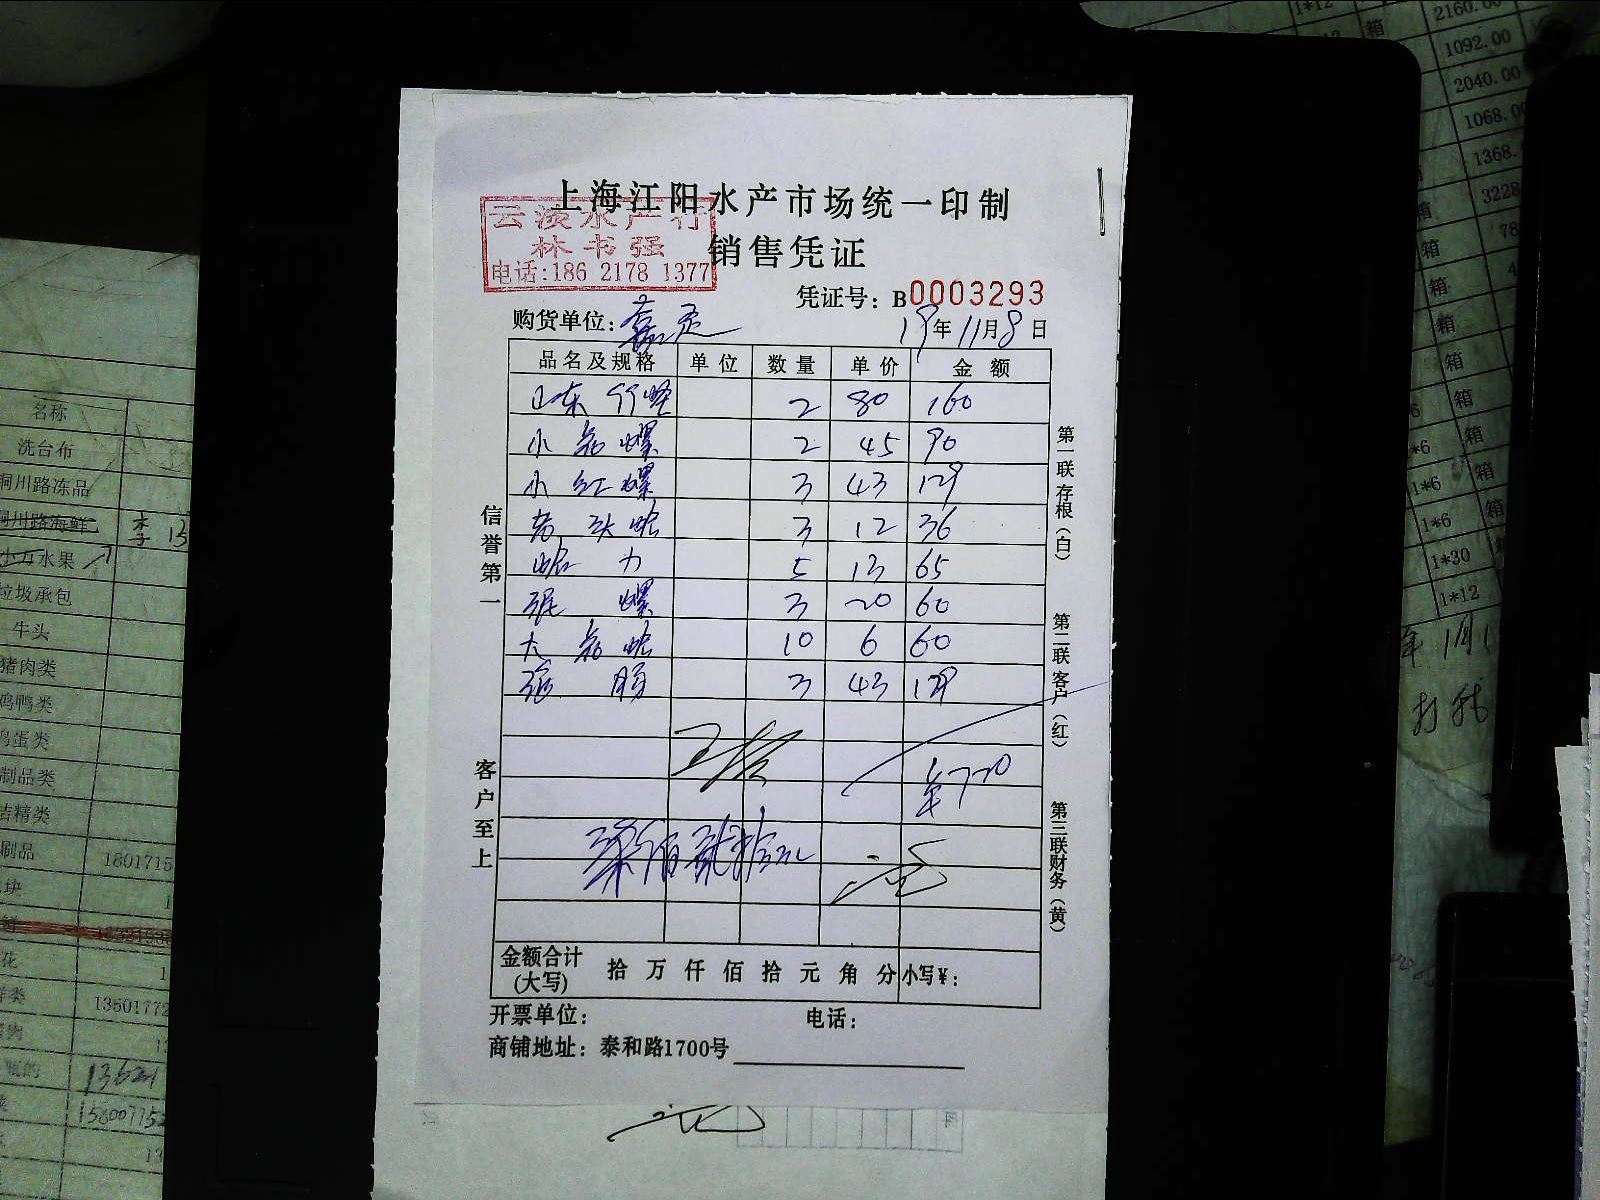 上海江阳水产市场统一印制
云波水产行
林书强
电话:186 2178 1377
销售凭证
凭证号: B0003293
购货单位: 嘉定
19年11月8日
品名及规格 单位 数量 单价 金额
山东竹蛏 2 80 160
小花螺 2 45 90
小红螺 3 43 129
芳头蛤 3 12 36
蛤力 5 13 65
泥螺 3 20 60
大花蛤 10 6 60
3 43 129
¥720
柒佰贰拾元
信誉第一
客户至上
第一联存根(白)
第二联客户(红)
第三联财务(黄)
金额合计(大写) 拾 万 仟 佰 拾 元 角 分 小写¥:
开票单位: 电话:
商铺地址: 泰和路1700号
名称
洗台布
铜川路冻品
铜川路海鲜 李 13
水果
垃圾承包
牛头
猪肉类
鸡鸭类
鸡蛋类
制品类
洁精类
刷品 1801715
块
花
1350177
13621
1580077
1*12 箱 2160.00
箱 1092.00
2040.00
1068.0
1368.
箱 3228
箱 78
箱
箱
箱
箱
*6 箱
1*6 箱
1*6 箱
1*30
1*12